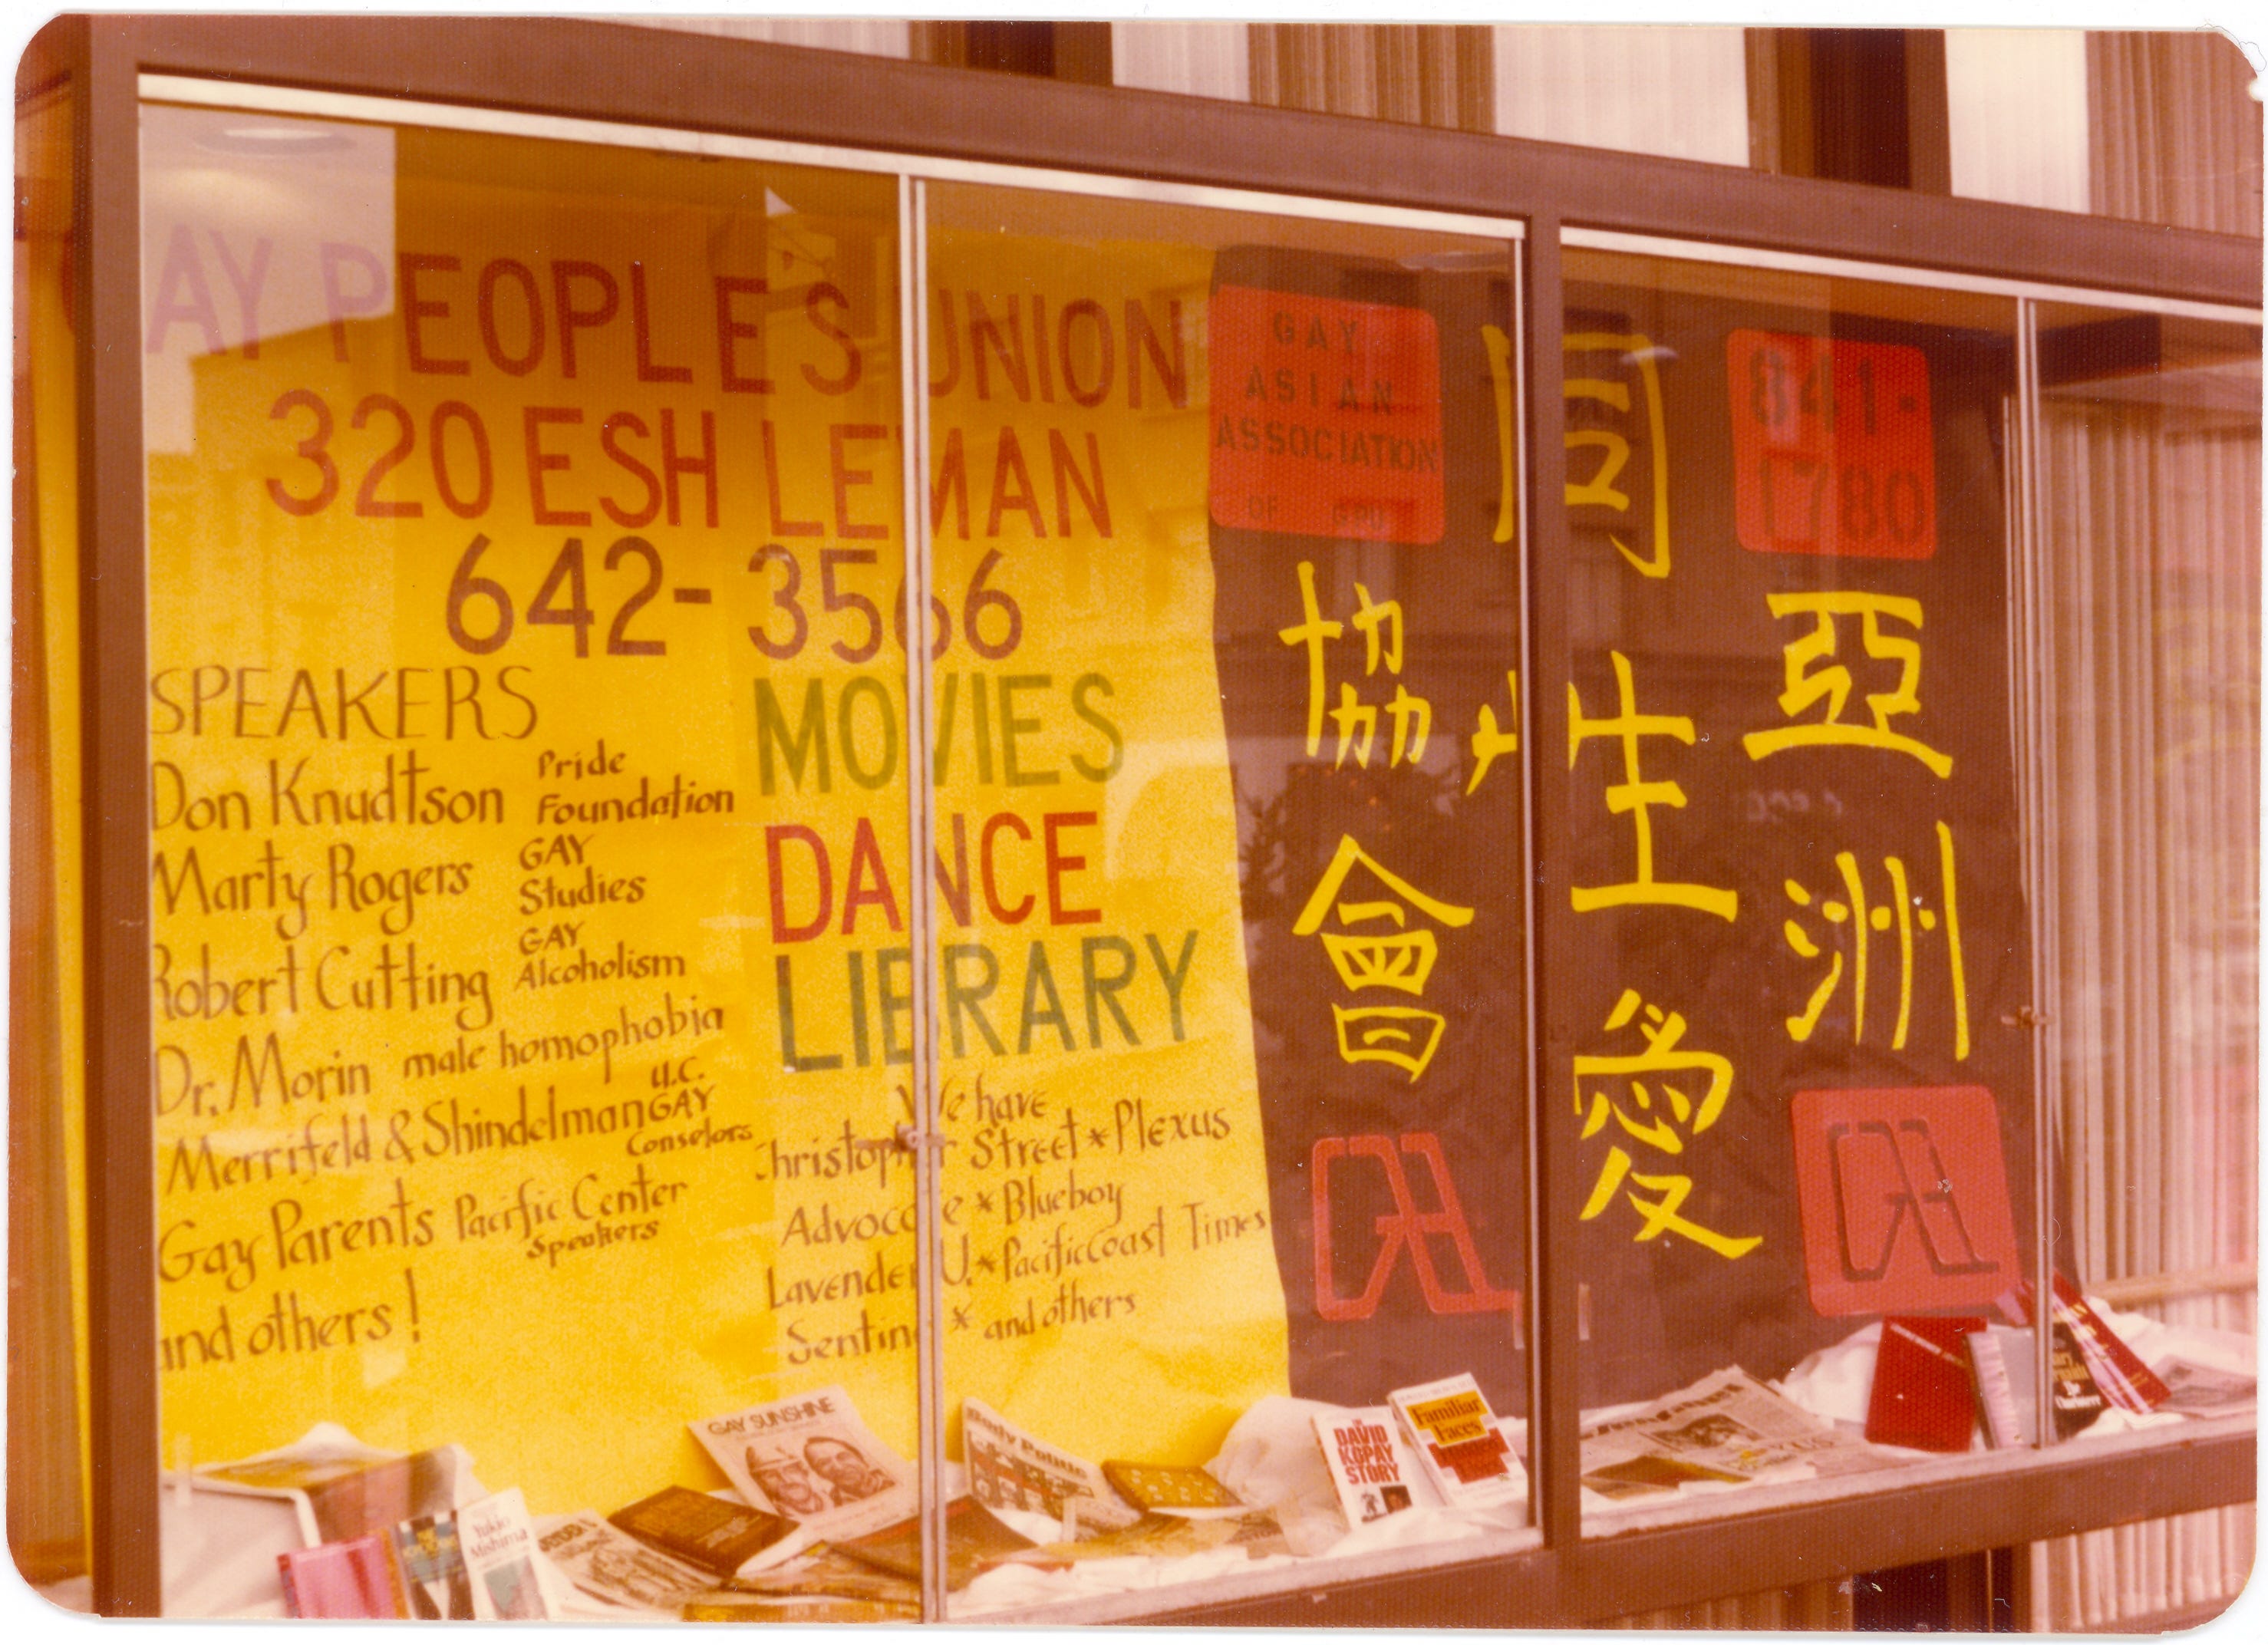 GAY PEOPLE'S UNION
320 ESHLEMAN
642-3566
SPEAKERS
Don Knudtson Pride Foundation
Marty Rogers GAY Studies
Robert Cutting GAY Alcoholism
Dr. Morin male homophobia
Merrifeld & Shindelman U.C. GAY Conselors
Gay Parents Pacific Center Speakers
and others!
MOVIES
DANCE
LIBRARY
We have
Christopher Street * Plexus
Advocate * Blueboy
Lavender U. * Pacific Coast Times
Sentinel * and others
GAY
ASIAN
ASSOCIATION
OF GPU
841-
1780
亞洲
同性愛
協會
GAY SUNSHINE
Body Politic
THE
DAVID
KOPAY
STORY
Familiar
Faces
Yukio
Mishima